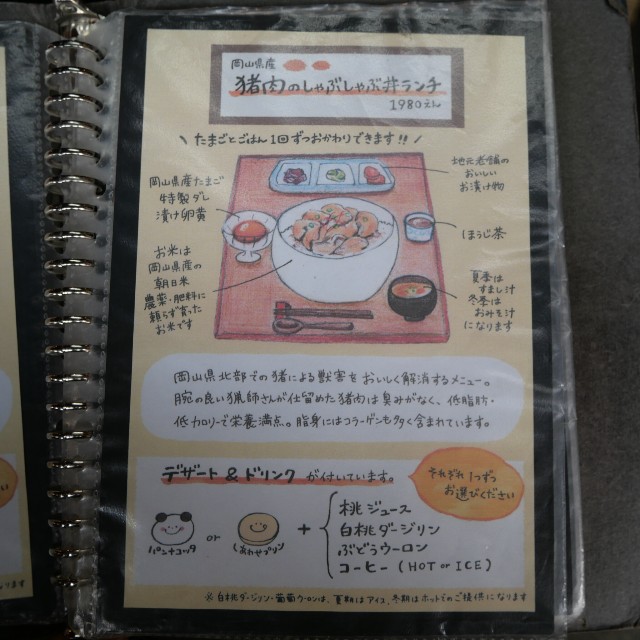 岡山県産
猪肉のしゃぶしゃぶ丼ランチ
1980えん
\ たまごとごはん1回ずつおかわりできます!! /
岡山県産たまご
特製ダレ
漬け卵黄
お米は
岡山県産の
朝日米
農薬・肥料に
頼らず育った
お米です
地元老舗の
おいしい
お漬け物
ほうじ茶
夏季は
すまし汁
冬季は
おみそ汁
になります
岡山県北部での猪による獣害をおいしく解消するメニュー。
腕の良い猟師さんが仕留めた猪肉は臭みがなく、低脂肪・
低カロリーで栄養満点。脂身にはコラーゲンも多く含まれています。
デザート&ドリンクが付いています。
それぞれ1つずつ
お選びください
パンナコッタ
or
しあわせプリン
+
桃ジュース
白桃ダージリン
ぶどうウーロン
コーヒー (HOT or ICE)
※白桃ダージリン・葡萄ウーロンは、夏期はアイス、冬期はホットでのご提供になります